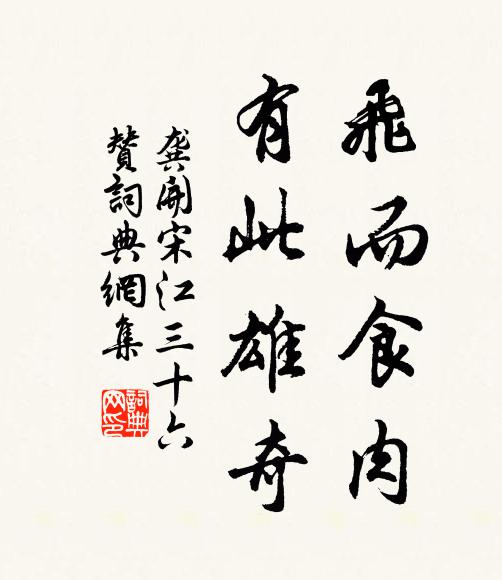 飛而食肉
有此雄奇
龔開宋江三十六
贊詞典網集
詞典网印